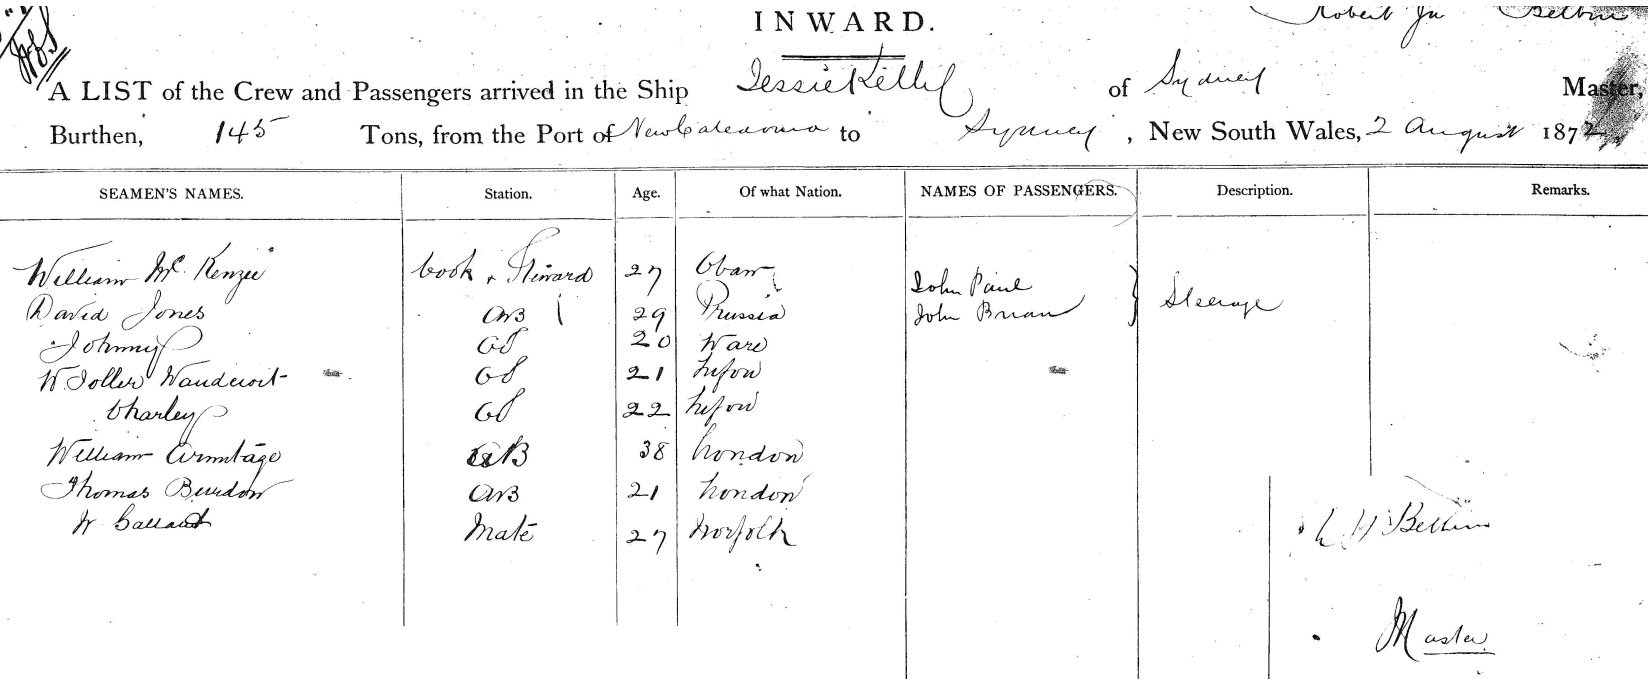 INWARD.
Robert Jn Belbin
A LIST of the Crew and Passengers arrived in the Ship Jessie Kelly of Sydney Master,
Burthen, 145 Tons, from the Port of New Caledonia to Sydney, New South Wales, 2 August 1872
SEAMEN'S NAMES. Station. Age. Of what Nation. NAMES OF PASSENGERS. Description. Remarks.
William McKenzie Cook & Steward 27 Oban John Paul
David Jones AB 29 Prussia John Brian Steerage
Johnny OS 20 Ware
W. Joller 21 Lifou
Charley OS 22 Lifou
William Armitage AB 38 London
Thomas Burdon AB 21 London
W Gallant Mate 27 Norfolk
Belbin
Master